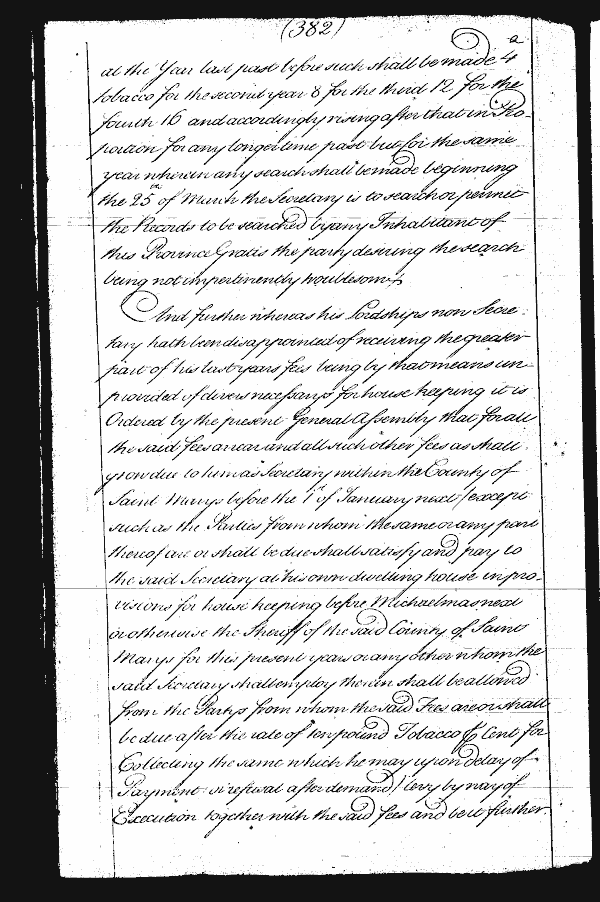 (382)
at the Year last past before such shall be made 4
tobacco for the second year 8 for the third 12 for the
fourth 16 and accordingly rising after that in Pro-
portion for any longer time past but for the same
year wherein any search shall be made beginning
the 25th of March the Secretary is to search or permit
the Records to be searched by any Inhabitant of
this Province Gratis the party desiring the search
being not impertinently troublesom
And further whereas his Lordships now Secre-
tary hath been disappointed of receiving the greater
part of his last years fees being by that means un-
provided of divers necessarys for house keeping it is
Ordered by the present General Assembly that for all
the said fees arrear and all such other fees as shall
grow due to him as Secretary within the County of
Saint Marys before the 1st of January next (except
such as the Parties from whom the same or any part
thereof are or shall be due shall satisfy and pay to
the said Secretary at his own dwelling house in pro-
visions for house keeping before Michaelmas next
or otherwise the Sheriff of the said County of Saint
Marys for this present year or any other whom the
said Secretary shall employ therein shall be allowed
from the Partys from whom the said Fees are or shall
be due after the rate of ten pound Tobacco P Cent for
Collecting the same which he may upon delay of
Payment or refusal after demand) levy by way of
Execution together with the said fees and be it further